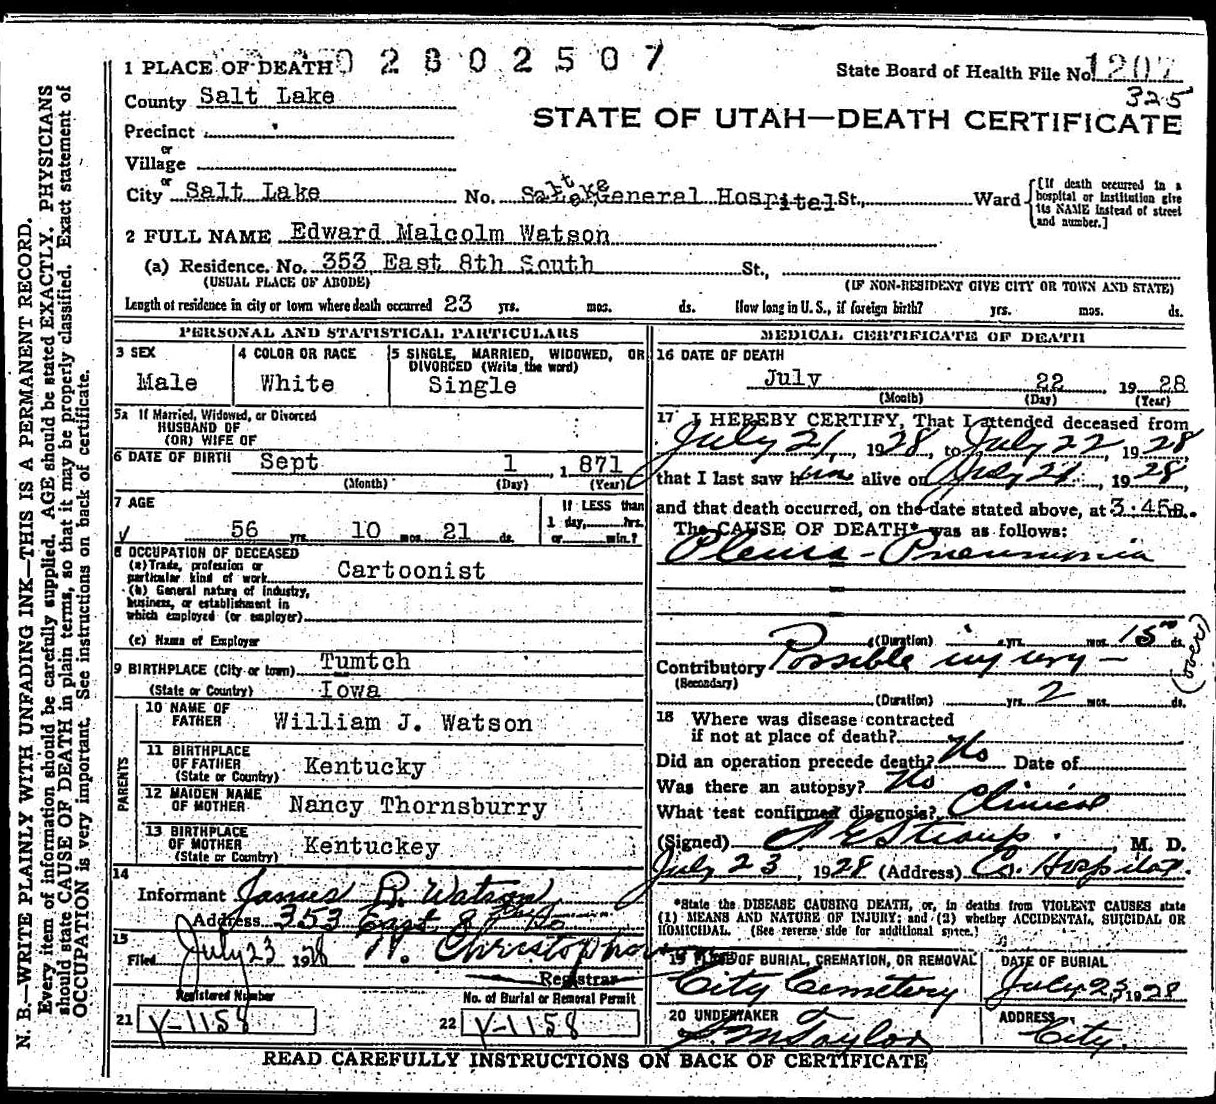 1 PLACE OF DEATH 0 2 8 0 2 5 0 7
State Board of Health File No. 1207
325
County Salt Lake
STATE OF UTAH—DEATH CERTIFICATE
Precinct
or
Village
or
City Salt Lake No. Salt Lake General Hospitel St., Ward
[If death occurred in a
hospital or institution give
its NAME instead of street
and number.]
2 FULL NAME Edward Malcolm Watson
(a) Residence. No. 353 East 8th South St.,
(USUAL PLACE OF ABODE) (IF NON-RESIDENT GIVE CITY OR TOWN AND STATE)
Length of residence in city or town where death occurred 23 yrs. mos. ds. How long in U. S., if foreign birth? yrs. mos. ds.
PERSONAL AND STATISTICAL PARTICULARS
3 SEX
Male
4 COLOR OR RACE
White
5 SINGLE, MARRIED, WIDOWED, OR
DIVORCED (Write the word)
Single
5a If Married, Widowed, or Divorced
HUSBAND OF
(OR) WIFE OF
6 DATE OF BIRTH Sept 1 1871
(Month) (Day) (Year)
7 AGE
56 yrs. 10 mos. 21 ds.
If LESS than
1 day, hrs.
or min.?
8 OCCUPATION OF DECEASED
(a) Trade, profession or
particular kind of work Cartoonist
(b) General nature of industry,
business, or establishment in
which employed (or employer)
(c) Name of Employer
9 BIRTHPLACE (City or town) Tumtch
(State or Country) Iowa
PARENTS
10 NAME OF
FATHER William J. Watson
11 BIRTHPLACE
OF FATHER
(State or Country) Kentucky
12 MAIDEN NAME
OF MOTHER Nancy Thornsburry
13 BIRTHPLACE
OF MOTHER
(State or Country) Kentuckey
14
Informant James R. Watson
Address 353 East 8th So
15
Filed July 23 1928 N. Christopherson
Registrar
Registered Number
21 V-1158
No. of Burial or Removal Permit
22 V-1158
MEDICAL CERTIFICATE OF DEATH
16 DATE OF DEATH
July 22 1928
(Month) (Day) (Year)
17 I HEREBY CERTIFY, That I attended deceased from
July 21, 1928, to July 22, 1928
that I last saw him alive on July 21, 1928,
and that death occurred, on the date stated above, at 3:45
The CAUSE OF DEATH* was as follows:
Pleuro-Pneumonia
(Duration) yrs. mos. 15 ds.
Contributory Possible injury—
(Secondary)
(over)
(Duration) yrs. 2 mos. ds.
18 Where was disease contracted
if not at place of death?
Did an operation precede death? No Date of
Was there an autopsy? No
What test confirmed diagnosis? Clinical
(Signed) , M. D.
July 23, 1928 (Address) Co. Hospital.
*State the DISEASE CAUSING DEATH, or, in deaths from VIOLENT CAUSES state
(1) MEANS AND NATURE OF INJURY; and (2) whether ACCIDENTAL, SUICIDAL OR
HOMICIDAL. (See reverse side for additional space.)
19 PLACE OF BURIAL, CREMATION, OR REMOVAL
City Cemetery
DATE OF BURIAL
July 23, 1928
20 UNDERTAKER
S. M. Taylor
ADDRESS
City.
READ CAREFULLY INSTRUCTIONS ON BACK OF CERTIFICATE
N. B.—WRITE PLAINLY WITH UNFADING INK—THIS IS A PERMANENT RECORD.
Every item of information should be carefully supplied. AGE should be stated EXACTLY. PHYSICIANS
should state CAUSE OF DEATH in plain terms, so that it may be properly classified. Exact statement of
OCCUPATION is very important. See instructions on back of certificate.